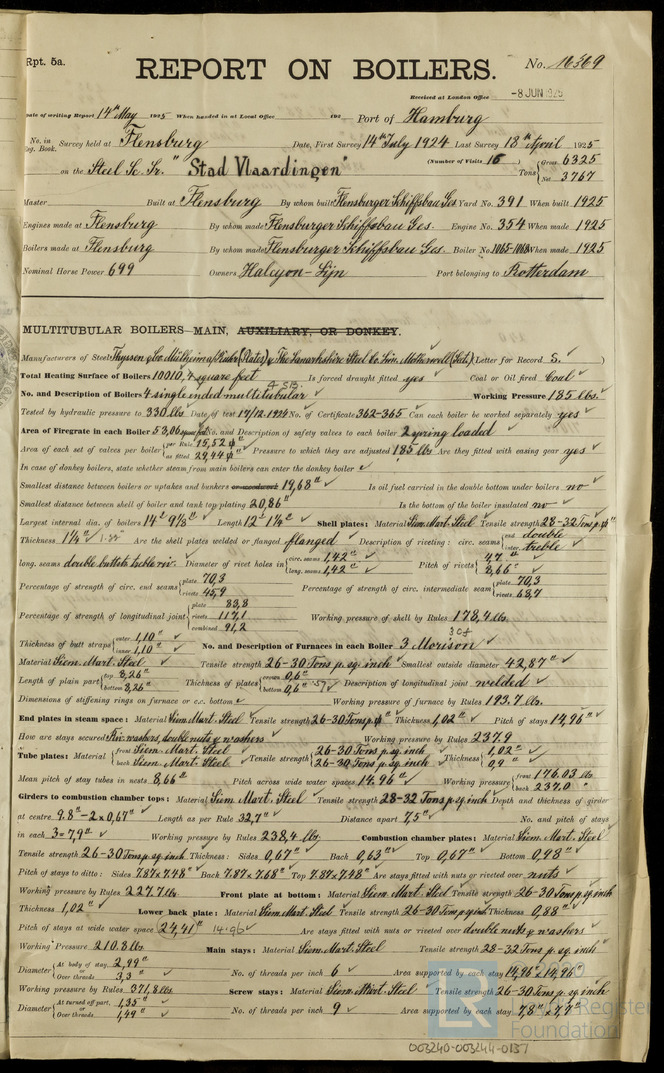 Rpt. 5a.
REPORT ON BOILERS.
No. 16569
Received at London Office -8 JUN 1925
Date of writing Report 14th May 1925 When handed in at Local Office 192 Port of Hamburg
No. in Reg. Book. Survey held at Flensburg Date, First Survey 14th July 1924 Last Survey 18th April 1925
on the Steel Sc. Sr. "Stad Vlaardingen" (Number of Visits 16) Tons Gross 6325 Net 3767
Master Built at Flensburg By whom built Flensburger Schiffsbau Ges Yard No. 391 When built 1925
Engines made at Flensburg By whom made Flensburger Schiffsbau Ges. Engine No. 354 When made 1925
Boilers made at Flensburg By whom made Flensburger Schiffsbau Ges. Boiler No. 1065-1068 When made 1925
Nominal Horse Power 699 Owners Halcyon-Lijn Port belonging to Rotterdam
MULTITUBULAR BOILERS—MAIN, AUXILIARY, OR DONKEY.
Manufacturers of Steel Thyssen & Co Mülheim a/Ruhr (Plates) & The Lanarkshire Steel Co Lim. Motherwell (Sect.) (Letter for Record S.)
Total Heating Surface of Boilers 10010,4 square feet Is forced draught fitted yes Coal or Oil fired Coal
4 SB.
No. and Description of Boilers 4 single ended multitubular Working Pressure 185 lbs.
Tested by hydraulic pressure to 330 lbs Date of test 17/12.1924 No. of Certificate 362-365 Can each boiler be worked separately yes
Area of Firegrate in each Boiler 53,06 square feet No. and Description of safety valves to each boiler 2 spring loaded
Area of each set of valves per boiler per Rule 15,52 as fitted 29,44 Pressure to which they are adjusted 185 lbs Are they fitted with easing gear yes
In case of donkey boilers, state whether steam from main boilers can enter the donkey boiler
Smallest distance between boilers or uptakes and bunkers or woodwork 19,68" Is oil fuel carried in the double bottom under boilers no
Smallest distance between shell of boiler and tank top plating 20,86" Is the bottom of the boiler insulated no
Largest internal dia. of boilers 14' 9 7/8" Length 12' 1 1/2" Shell plates: Material Siem. Mart. Steel Tensile strength 28-32 Tons p.
Thickness 1 1/4" Are the shell plates welded or flanged flanged Description of riveting: circ. seams end double inter. treble
long. seams double butts treble riv. Diameter of rivet holes in circ. seams 1,42" long. seams 1,42" Pitch of rivets 4,7" 8,66"
Percentage of strength of circ. end seams plate 70,3 rivets 45,9 Percentage of strength of circ. intermediate seam plate 70,3 rivets 68,7
Percentage of strength of longitudinal joint plate 83,8 rivets 117,1 combined 91,2 Working pressure of shell by Rules 178,4 lbs.
Thickness of butt straps outer 1,10" inner 1,10" No. and Description of Furnaces in each Boiler 3 Morison
Material Siem. Mart. Steel Tensile strength 26-30 Tons p. sq. inch Smallest outside diameter 42,87"
Length of plain part top 8,26" bottom 8,26" Thickness of plates crown 0,6" bottom 0,6" Description of longitudinal joint welded
Dimensions of stiffening rings on furnace or c.c. bottom Working pressure of furnace by Rules 193,7 lbs.
End plates in steam space: Material Siem. Mart. Steel Tensile strength 26-30 Tons p. Thickness 1,02" Pitch of stays 14,96"
How are stays secured Riv. washers, double nuts & washers Working pressure by Rules 237.9
Tube plates: Material front Siem. Mart. Steel back Siem. Mart. Steel Tensile strength 26-30 Tons p. sq. inch 26-30 Tons p. sq. inch Thickness 1,02" 0,9"
Mean pitch of stay tubes in nests 8,66" Pitch across wide water spaces 14.96" Working pressure front 176.03 lb back 237.0
Girders to combustion chamber tops: Material Siem. Mart. Steel Tensile strength 28-32 Tons p. sq. inch Depth and thickness of girder
at centre 9.8" – 2 x 0,67" Length as per Rule 32,7" Distance apart 7,5" No. and pitch of stays
in each 3 = 7,9" Working pressure by Rules 238,4 lbs. Combustion chamber plates: Material Siem. Mart. Steel
Tensile strength 26-30 Tons p. sq. inch Thickness: Sides 0,67" Back 0,63" Top 0,67" Bottom 0,98"
Pitch of stays to ditto: Sides 7.87 x 7.48" Back 7.87 x 7.68" Top 7.87 x 7.48" Are stays fitted with nuts or riveted over nuts
Working pressure by Rules 227.7 lbs. Front plate at bottom: Material Siem. Mart. Steel Tensile strength 26-30 Tons p. sq. inch
Thickness 1,02" Lower back plate: Material Siem. Mart. Steel Tensile strength 26-30 Tons p. sq. inch Thickness 0,88"
Pitch of stays at wide water space 24,41" 14.96 Are stays fitted with nuts or riveted over double nuts & washers
Working Pressure 210.8 lbs Main stays: Material Siem. Mart. Steel Tensile strength 28-32 Tons p. sq. inch
Diameter At body of stay 2,99" Over threads 3,3" No. of threads per inch 6 Area supported by each stay 14,96 x 14,96"
Working pressure by Rules 371,8 lbs. Screw stays: Material Siem. Mart. Steel Tensile strength 26-30 Tons p. sq. inch
Diameter At turned off part 1,35" or Over threads 1,49" No. of threads per inch 9 Area supported by each stay 7,8" x 7,7"
LR Lloyd's Register Foundation
003240-003244-0137